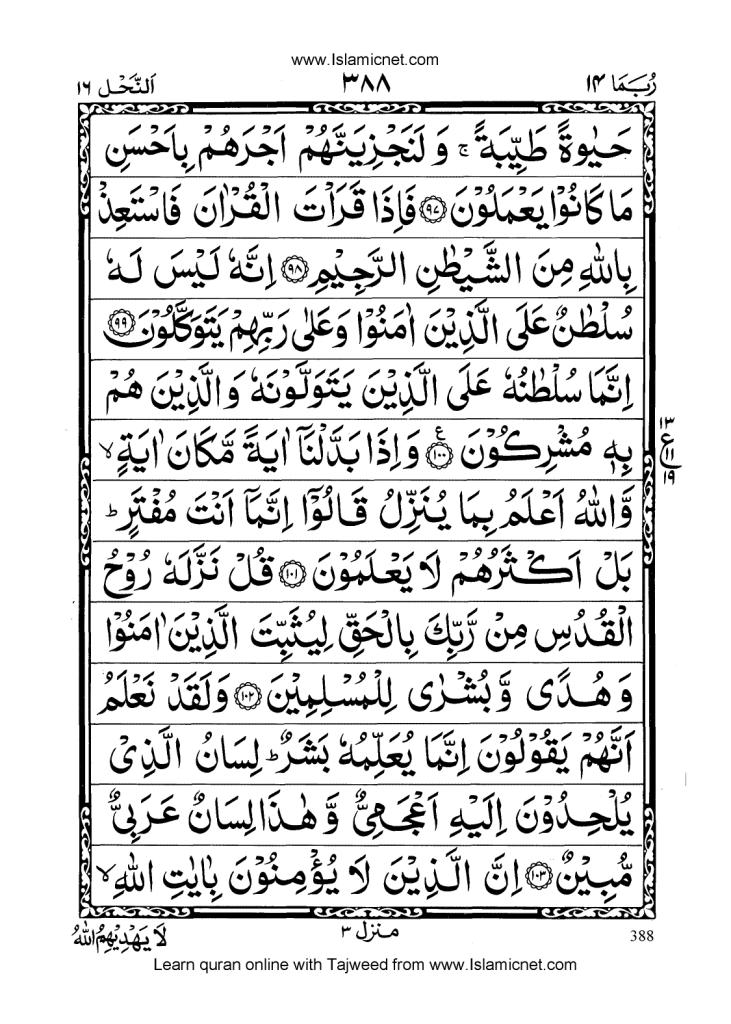 www.Islamicnet.com
رُبَمَا ١٤ ٣٨٨ اَلنَّحْل ١٦
حَيٰوةً طَيِّبَةً ۚ وَ لَنَجْزِيَنَّهُمْ اَجْرَهُمْ بِاَحْسَنِ
مَا كَانُوْا يَعْمَلُوْنَ ﴿٩٧﴾ فَاِذَا قَرَاْتَ الْقُرْاٰنَ فَاسْتَعِذْ
بِاللّٰهِ مِنَ الشَّيْطٰنِ الرَّجِيْمِ ﴿٩٨﴾ اِنَّهٗ لَيْسَ لَهٗ
سُلْطٰنٌ عَلَى الَّذِيْنَ اٰمَنُوْا وَعَلٰى رَبِّهِمْ يَتَوَكَّلُوْنَ ﴿٩٩﴾
اِنَّمَا سُلْطٰنُهٗ عَلَى الَّذِيْنَ يَتَوَلَّوْنَهٗ وَالَّذِيْنَ هُمْ
بِهٖ مُشْرِكُوْنَ ﴿١٠٠﴾ ع وَاِذَا بَدَّلْنَاۤ اٰيَةً مَّكَانَ اٰيَةٍ ۙ
١٣
ع ١١
١٩
وَّاللّٰهُ اَعْلَمُ بِمَا يُنَزِّلُ قَالُوْۤا اِنَّمَاۤ اَنْتَ مُفْتَرٍ ؕ
بَلْ اَكْثَرُهُمْ لَا يَعْلَمُوْنَ ﴿١٠١﴾ قُلْ نَزَّلَهٗ رُوْحُ
الْقُدُسِ مِنْ رَّبِّكَ بِالْحَقِّ لِيُثَبِّتَ الَّذِيْنَ اٰمَنُوْا
وَ هُدًى وَّ بُشْرٰى لِلْمُسْلِمِيْنَ ﴿١٠٢﴾ وَلَقَدْ نَعْلَمُ
اَنَّهُمْ يَقُوْلُوْنَ اِنَّمَا يُعَلِّمُهٗ بَشَرٌ ؕ لِسَانُ الَّذِىْ
يُلْحِدُوْنَ اِلَيْهِ اَعْجَمِىٌّ وَّ هٰذَا لِسَانٌ عَرَبِىٌّ
مُّبِيْنٌ ﴿١٠٣﴾ اِنَّ الَّذِيْنَ لَا يُؤْمِنُوْنَ بِاٰيٰتِ اللّٰهِ ۙ
لَا يَهْدِيْهِمُ اللّٰهُ منزل ٣ 388
Learn quran online with Tajweed from www.Islamicnet.com